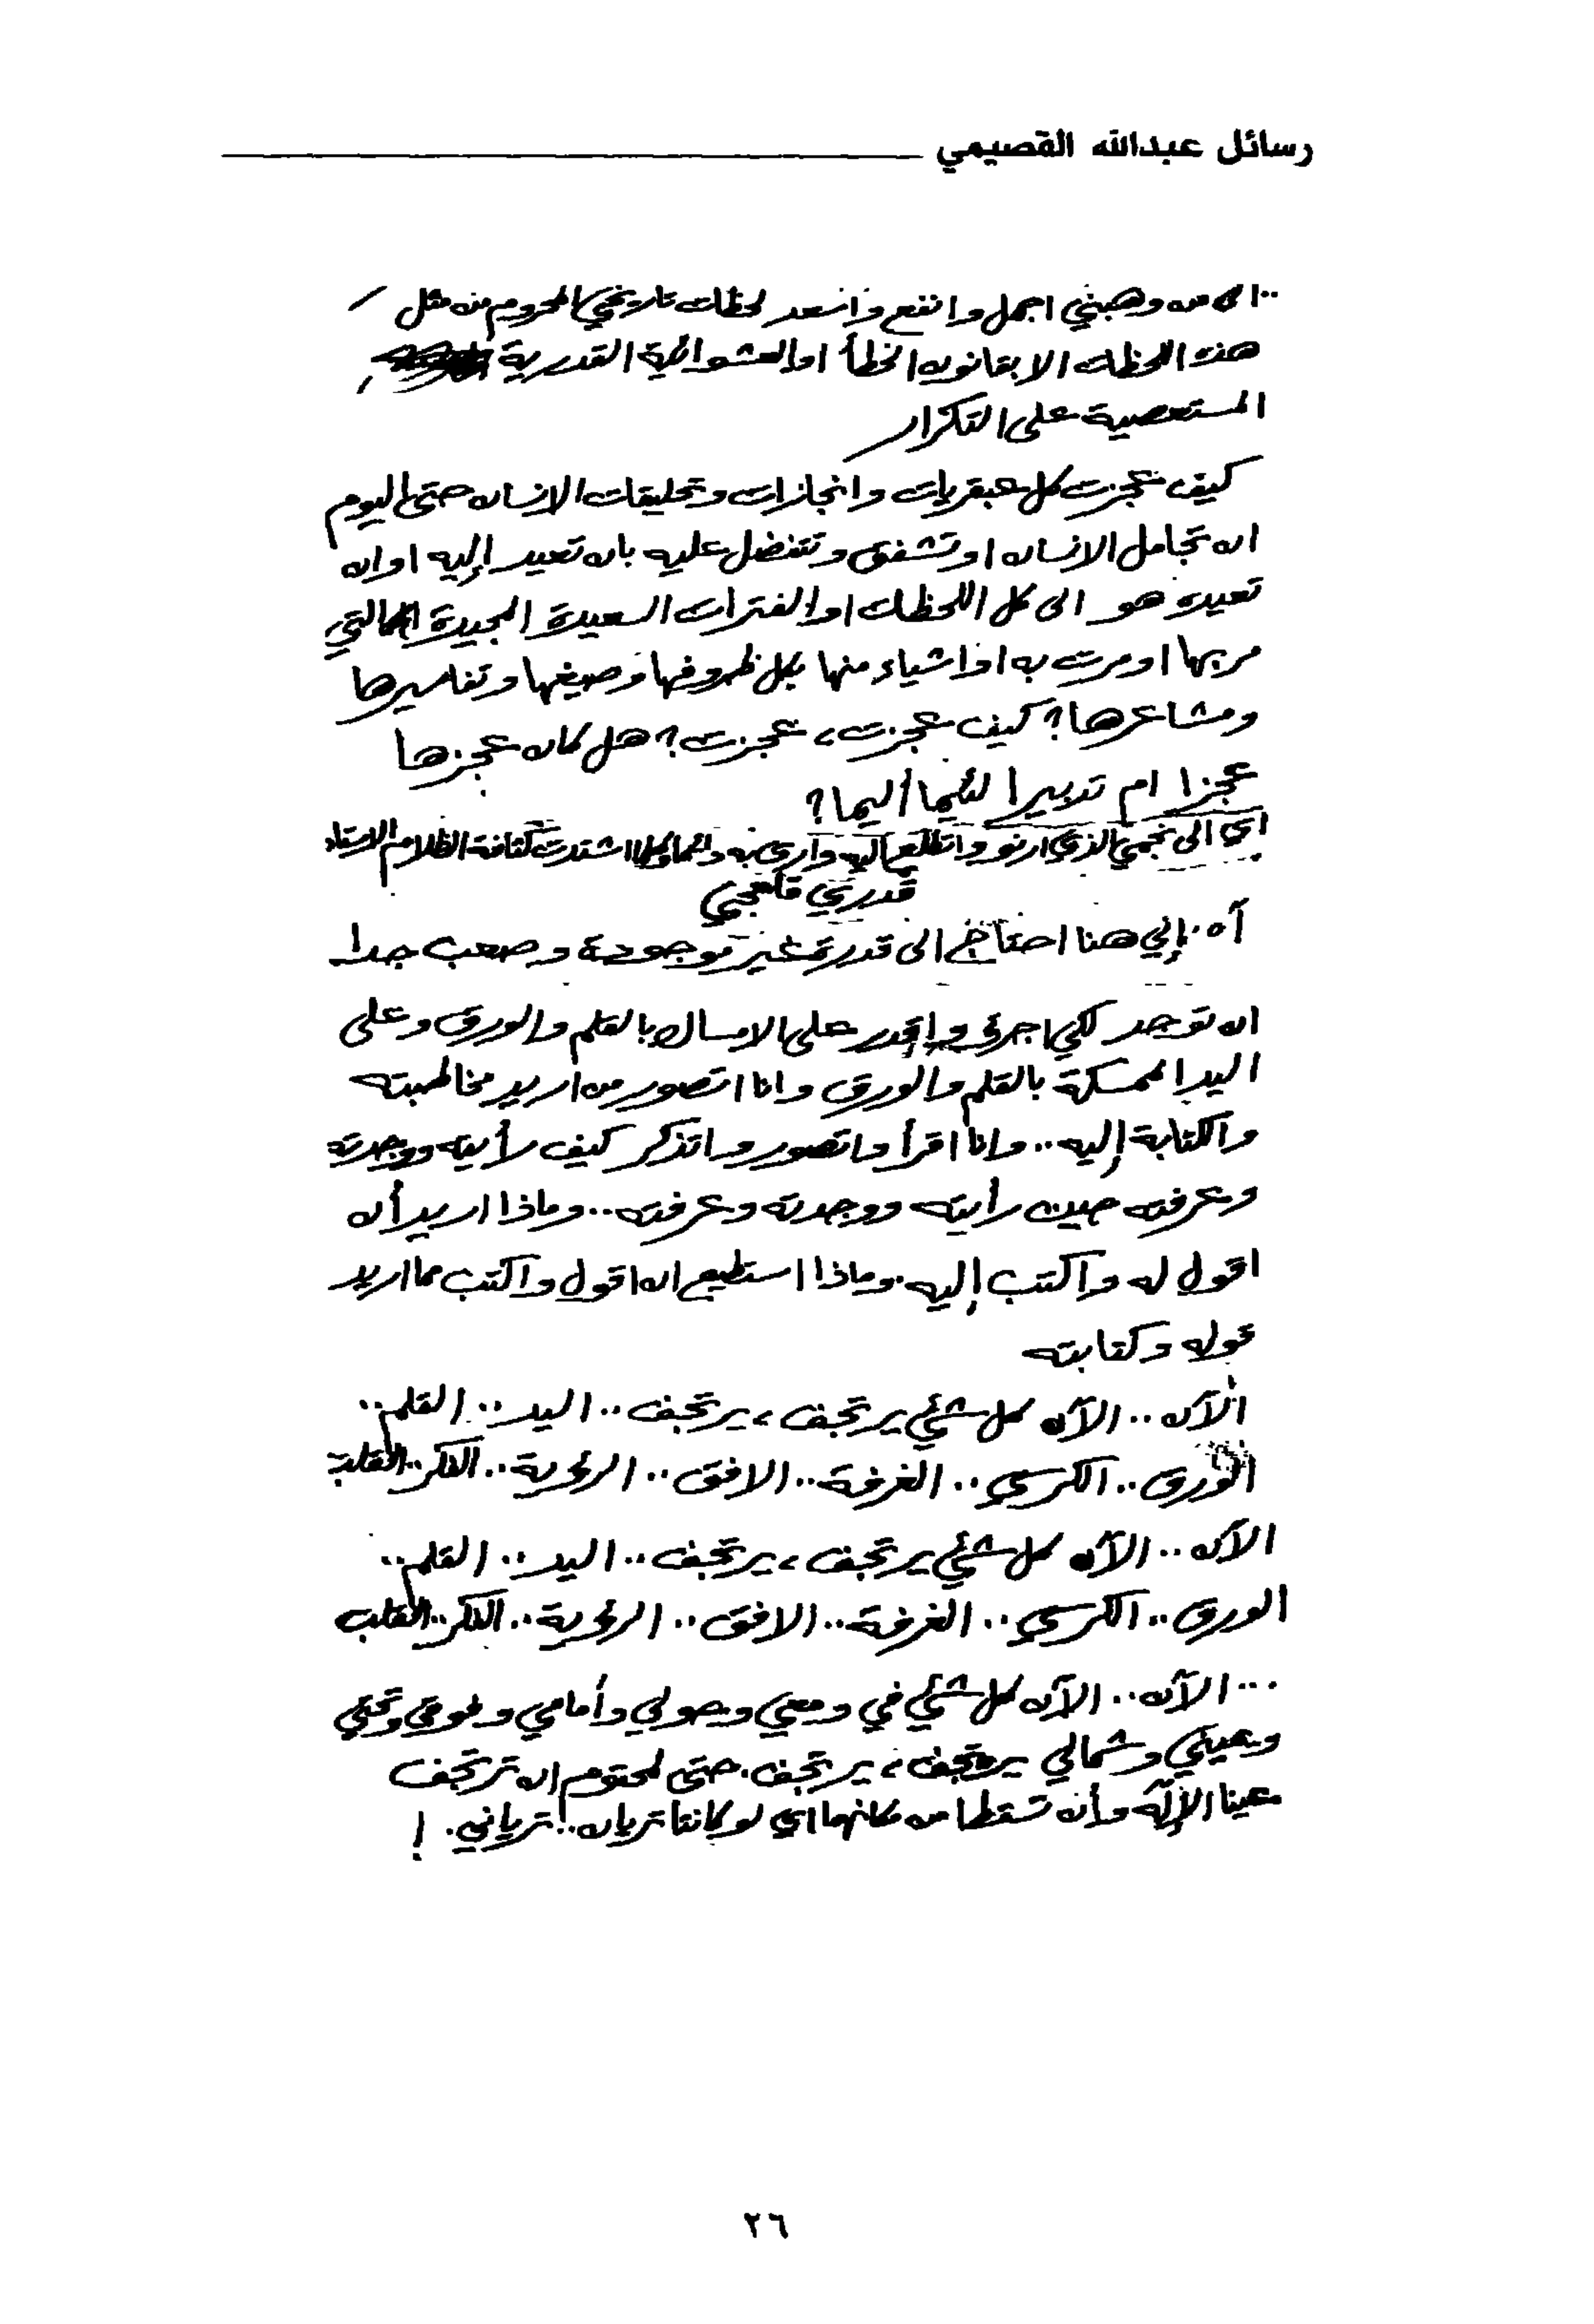 رسائل عبدالله القصيمي
..الى من وهبني اجمل وانفع واسعد لحظات تاريخي المحروم من مثل
هذه اللحظات الا بقانون الخطأ او العشوائية القدرية
المستعصية على التكرار
كيف عجزت كل عبقريات وانجازات وتحليقات الانسان حتى اليوم
ان تجامل الانسان او تشفق وتتفضل عليه بان تعيد إليه او ان
تعيده هو الى كل اللحظات او الفترات السعيدة المجيدة التي
مر بها او مرت به او اشياء منها بكل ظروفها وصيغها وتفاسيرها
ومشاعرها؟ كيف عجزت، عجزت؟ هل كان عجزها
عجزا ام تدبيرا لئيما أليما؟
اي الى نجمي الذي ارنو واتطلع اليه وارى به دائما وكلما اشتدت كثافة الظلام الاستاذ
قدري قلعجي
آه. إني هنا احتاج الى قدرة غير موجودة وصعب جدا
ان توجد لكي اجرؤ واقدر على الامساك بالقلم والورق وعلى
اليد الممسكة بالقلم والورق وانا اتصور من اريد مخاطبته
والكتابة إليه.. وانا اقرأ واتصور واتذكر كيف رأيته ووجدته
وعرفته حين رأيته ووجدته وعرفته.. وماذا اريد أن
اقول له واكتب إليه. وماذا استطيع ان اقول واكتب مما اريد
قوله وكتابته
الآن.. الآن كل شئي يرتجف، يرتجف.. اليد.. القلم..
الورق.. الكرسي.. الغرفة.. الافق.. الرؤية.. الفكر.. القلب
الآن.. الآن كل شئي يرتجف، يرتجف.. اليد.. القلم..
الورق.. الكرسي.. الغرفة.. الافق.. الرؤية.. الفكر.. القلب
... الآن.. الآن كل شئي في ومعي وحولي وأمامي وفوقي وتحتي
ويميني وشمالي يرتجف، يرتجف. حتى لمحتوم ان ترتجف
عينا الإله وأن تسقطا من مكانهما اي لو كانتا تريان.! ترياني. !
٢٦